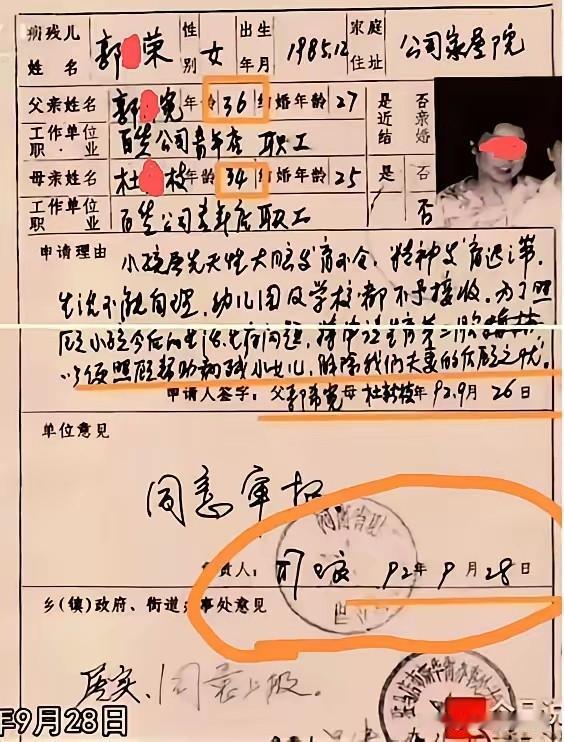 病残儿姓名 郭 荣 性别 女 出生年月 1985.12 家庭住址 公司家属院
父亲姓名 郭 宪 年龄 36 结婚年龄 27 是否近亲结婚
工作单位职·业 百货公司青年店 职工
母亲姓名 杜 枝 年龄 34 结婚年龄 25 是 否
工作单位职·业 百货公司青年店职工 否
申请理由 小孩属先天性大脑发育不全,精神发育迟滞,
生活不能自理,幼儿园及学校都不予接收。为了照
顾小孩今后的生活、生存问题,特申请生育第二胎
以便照顾帮助病残小女儿,解除我们夫妻的后顾之忧。
申请人签字:父 郭希宽 母 杜新枝 年 92.9月26日
单位意见
同意审报
负责人: 92年9月28日
乡(镇)政府、街道办事处意见
属实、同意上报。
年9月28日